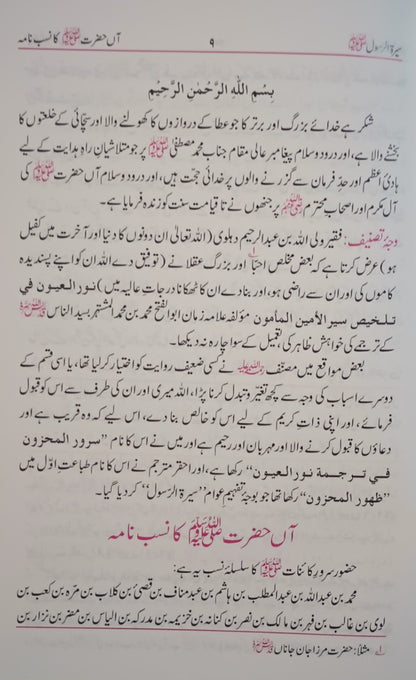 سیرۃ الرسول ﷺ ۹ آں حضرت ﷺ کا نسب نامہ
بِسْمِ اللّٰهِ الرَّحْمٰنِ الرَّحِيْمِ
شکر ہے خدائے بزرگ اور برتر کا جو عطا کے دروازوں کا کھولنے والا اور سچائی کے خلعتوں کا
بخشنے والا ہے، اور درود و سلام پیغامبر عالی مقام جناب محمد مصطفیٰ ﷺ پر جو متلاشیان راہِ ہدایت کے لیے
ہادیٔ اعظم اور حدِ فرمان سے گزرنے والوں پر خدائی حجت ہیں، اور درود و سلام آں حضرت ﷺ کی
آل مکرم اور اصحاب محترم ﷺ پر جنھوں نے تا قیامت سنت کو زندہ فرمایا ہے۔
وجۂ تصنیف: فقیر ولی اللہ بن عبدالرحیم دہلوی (اللہ تعالیٰ ان دونوں کا دنیا اور آخرت میں کفیل
ہو) عرض کرتا ہے کہ بعض مخلص احبا؎۱ اور بزرگ عقلا نے (توفیق دے اللہ ان کو اپنے پسندیدہ
کاموں کی اور ان سے راضی ہو، اور بنا دے ان کا ٹھکانا درجاتِ عالیہ میں) نور العیون فی
تلخیص سیر الأمین المأمون مؤلفہ علامہ زمان ابوالفتح محمد بن محمد المشتہر بسید الناس
کے ترجمے کی خواہش ظاہر کی، تعمیل کے سوا چارہ نہ دیکھا۔
بعض مواقع میں مصنف نے کسی ضعیف روایت کو اختیار کر لیا تھا، یا اسی قسم کے
دوسرے اسباب کی وجہ سے کچھ تغیر و تبدل کرنا پڑا، اللہ میری اور ان کی طرف سے اس کو قبول
فرمائے، اور اپنی ذاتِ کریم کے لیے اس کو خالص بنا دے، اس لیے کہ وہ قریب ہے اور
دعاؤں کا قبول کرنے والا اور مہربان اور رحیم ہے اور میں نے اس کا نام ”سرور المحزون
فی ترجمة نور العیون“ رکھا ہے، اور احقر مترجم نے اس کا نام طباعتِ اوّل میں
”ظهور المحزون“ رکھا تھا جو بوجۂ تفہیمِ عوام ”سیرۃ الرسول“ کر دیا گیا۔
آں حضرت ﷺ کا نسب نامہ
حضور سرورِ کائنات ﷺ کا سلسلۂ نسب یہ ہے:
محمد بن عبداللہ بن عبدالمطلب بن ہاشم بن عبد مناف بن قصیّ بن کلاب بن مرّہ بن کعب بن
لوی بن غالب بن فہر بن مالک بن نصر بن کنانہ بن خزیمہ بن مدرکہ بن الیاس بن مضر بن نزار بن
؎۱ مثلاً: حضرت مرزا جان جاناں